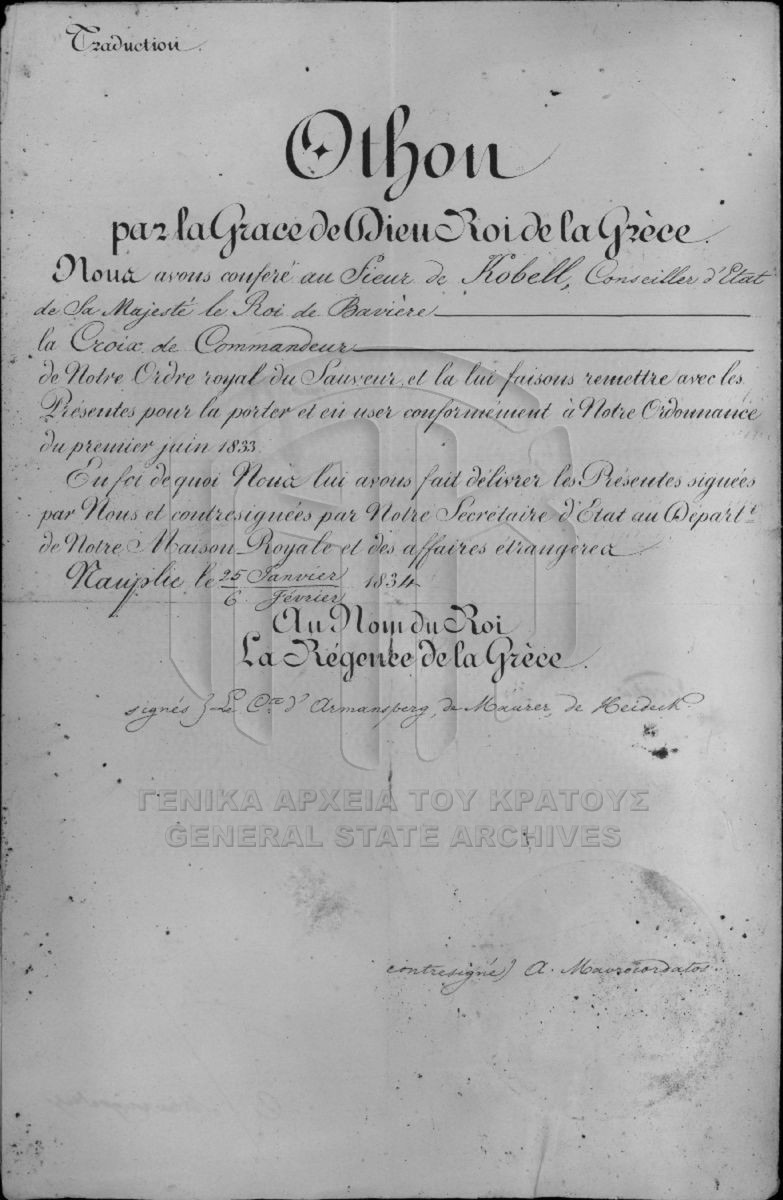 Traduction.
Othon
par la Grace de Dieu Roi de la Grèce.
Nous avons conferé au Sieur de Kobell, Conseiller d'Etat
de Sa Majesté le Roi de Bavière
la Croix de Commandeur
de Notre Ordre royal du Sauveur, et la lui faisons remettre avec les
Présentes pour la porter et en user conformément à Notre Ordonnance
du premier juin 1833.
En foi de quoi Nous lui avons fait délivrer les Présentes signées
par Nous et contresignées par Notre Secrétaire d'Etat au Départ.t
de Notre Maison Royale et des affaires étrangères
Nauplie le 25 Janvier / 6 Février 1834
Au Nom du Roi
La Régence de la Grèce.
signés) Le Cte d'Armansperg, de Maurer, de Heideck
ΓΕΝΙΚΑ ΑΡΧΕΙΑ ΤΟΥ ΚΡΑΤΟΥΣ
GENERAL STATE ARCHIVES
contresigné) A. Mavrocordatos.